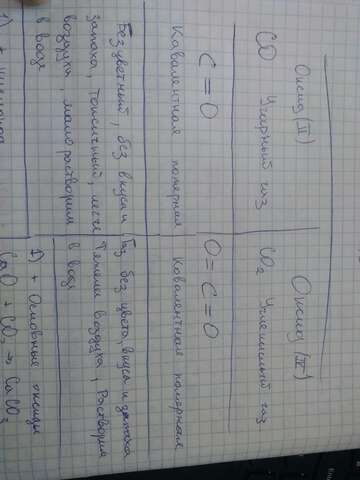 Оксид (II)
CO Угарный газ
C = O
Кавалентная полярная
Безцветный, без вкуса и
запаха, токсичный, легче
воздуха, мало растворим
в воде
1) + кислород
Оксид (IV)
CO₂ Углекислый газ
O = C = O
Ковалентная полярная
Газ без цвета, вкуса и запаха
Тяжели воздуха, Растворим
в воде
1) + Основные оксиды
CaO + CO₂ → CaCO₃